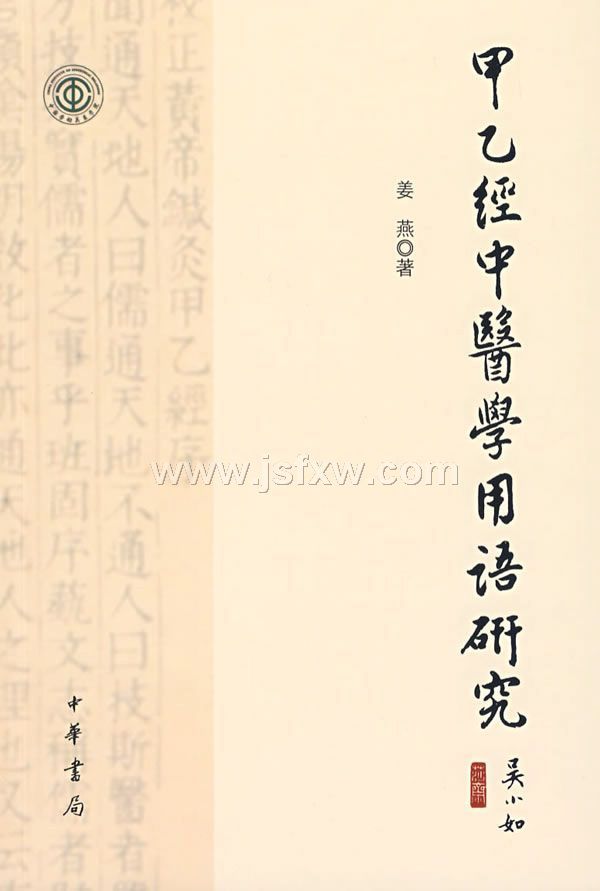 甲乙經中醫學用語研究
吳小如
姜燕◎著
校正黃帝鍼灸甲乙經序
聞通天地人曰儒通天地不通人曰技斯醫者
方技
實儒者之事乎班固序藝文志稱
亦通天地人之理也又云
中華書局
www.jsfxw.com